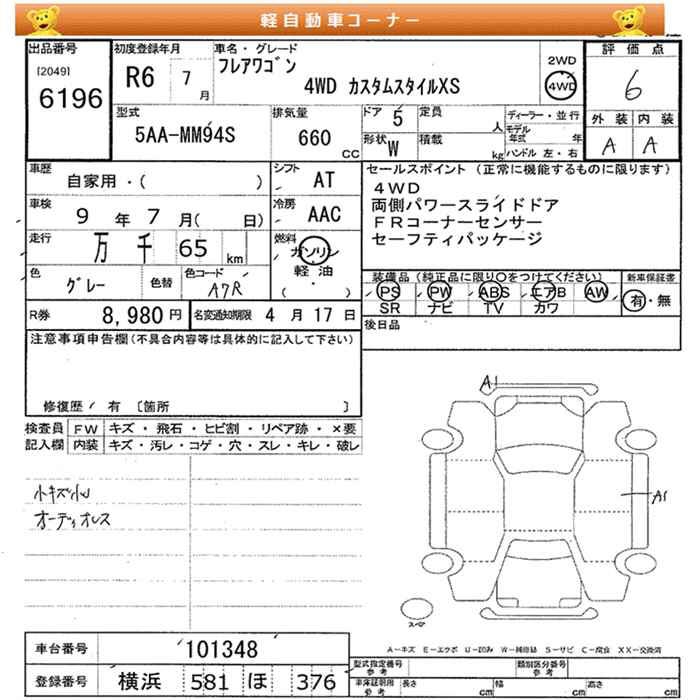 軽自動車コーナー
出品番号 初度登録年月 車名・グレード 評価点
[2049] 6196
R6 7月
フレアワゴン
4WD カスタムスタイルXS
2WD
4WD
6
型式 排気量 ドア 定員 ディーラー・並行 外装 内装
5AA-MM94S 660 CC 5 人 モデル年式 年 A A
形状 W 積載 kg ハンドル 左・右
車歴 自家用・( ) シフト AT
セールスポイント (正常に機能するものに限ります)
4WD
両側パワースライドドア
FRコーナーセンサー
セーフティパッケージ
車検 9年7月( 日) 冷房 AAC
走行 万千65km 燃料 ガソリン
軽油
( ・ )
色 グレー 色替 色コード A7R
装備品 (純正品に限り○をつけてください) 新車保証書
PS PW ABS エアB AW 有・無
SR ナビ TV カワ
R券 8,980円 名変通知期限 4月17日
後日品
注意事項申告欄(不具合内容等は具体的に記入して下さい)
修復歴 有 [箇所 ]
検査員 FW キズ・飛石・ヒビ割・リペア跡・×要
記入欄 内装 キズ・汚レ・コゲ・穴・スレ・キレ・破レ
小キズ小凹
オーディオレス
A1
A1
スペア
A-キズ E-エクボ U-凹み W-補修跡 S-サビ C-腐食 XX-交換済
車台番号 101348
登録番号 横浜 581 ほ 376
型式指定番号 参考 類別区分番号 参考
車庫証明用 参考 長さ cm 幅 cm 高さ cm